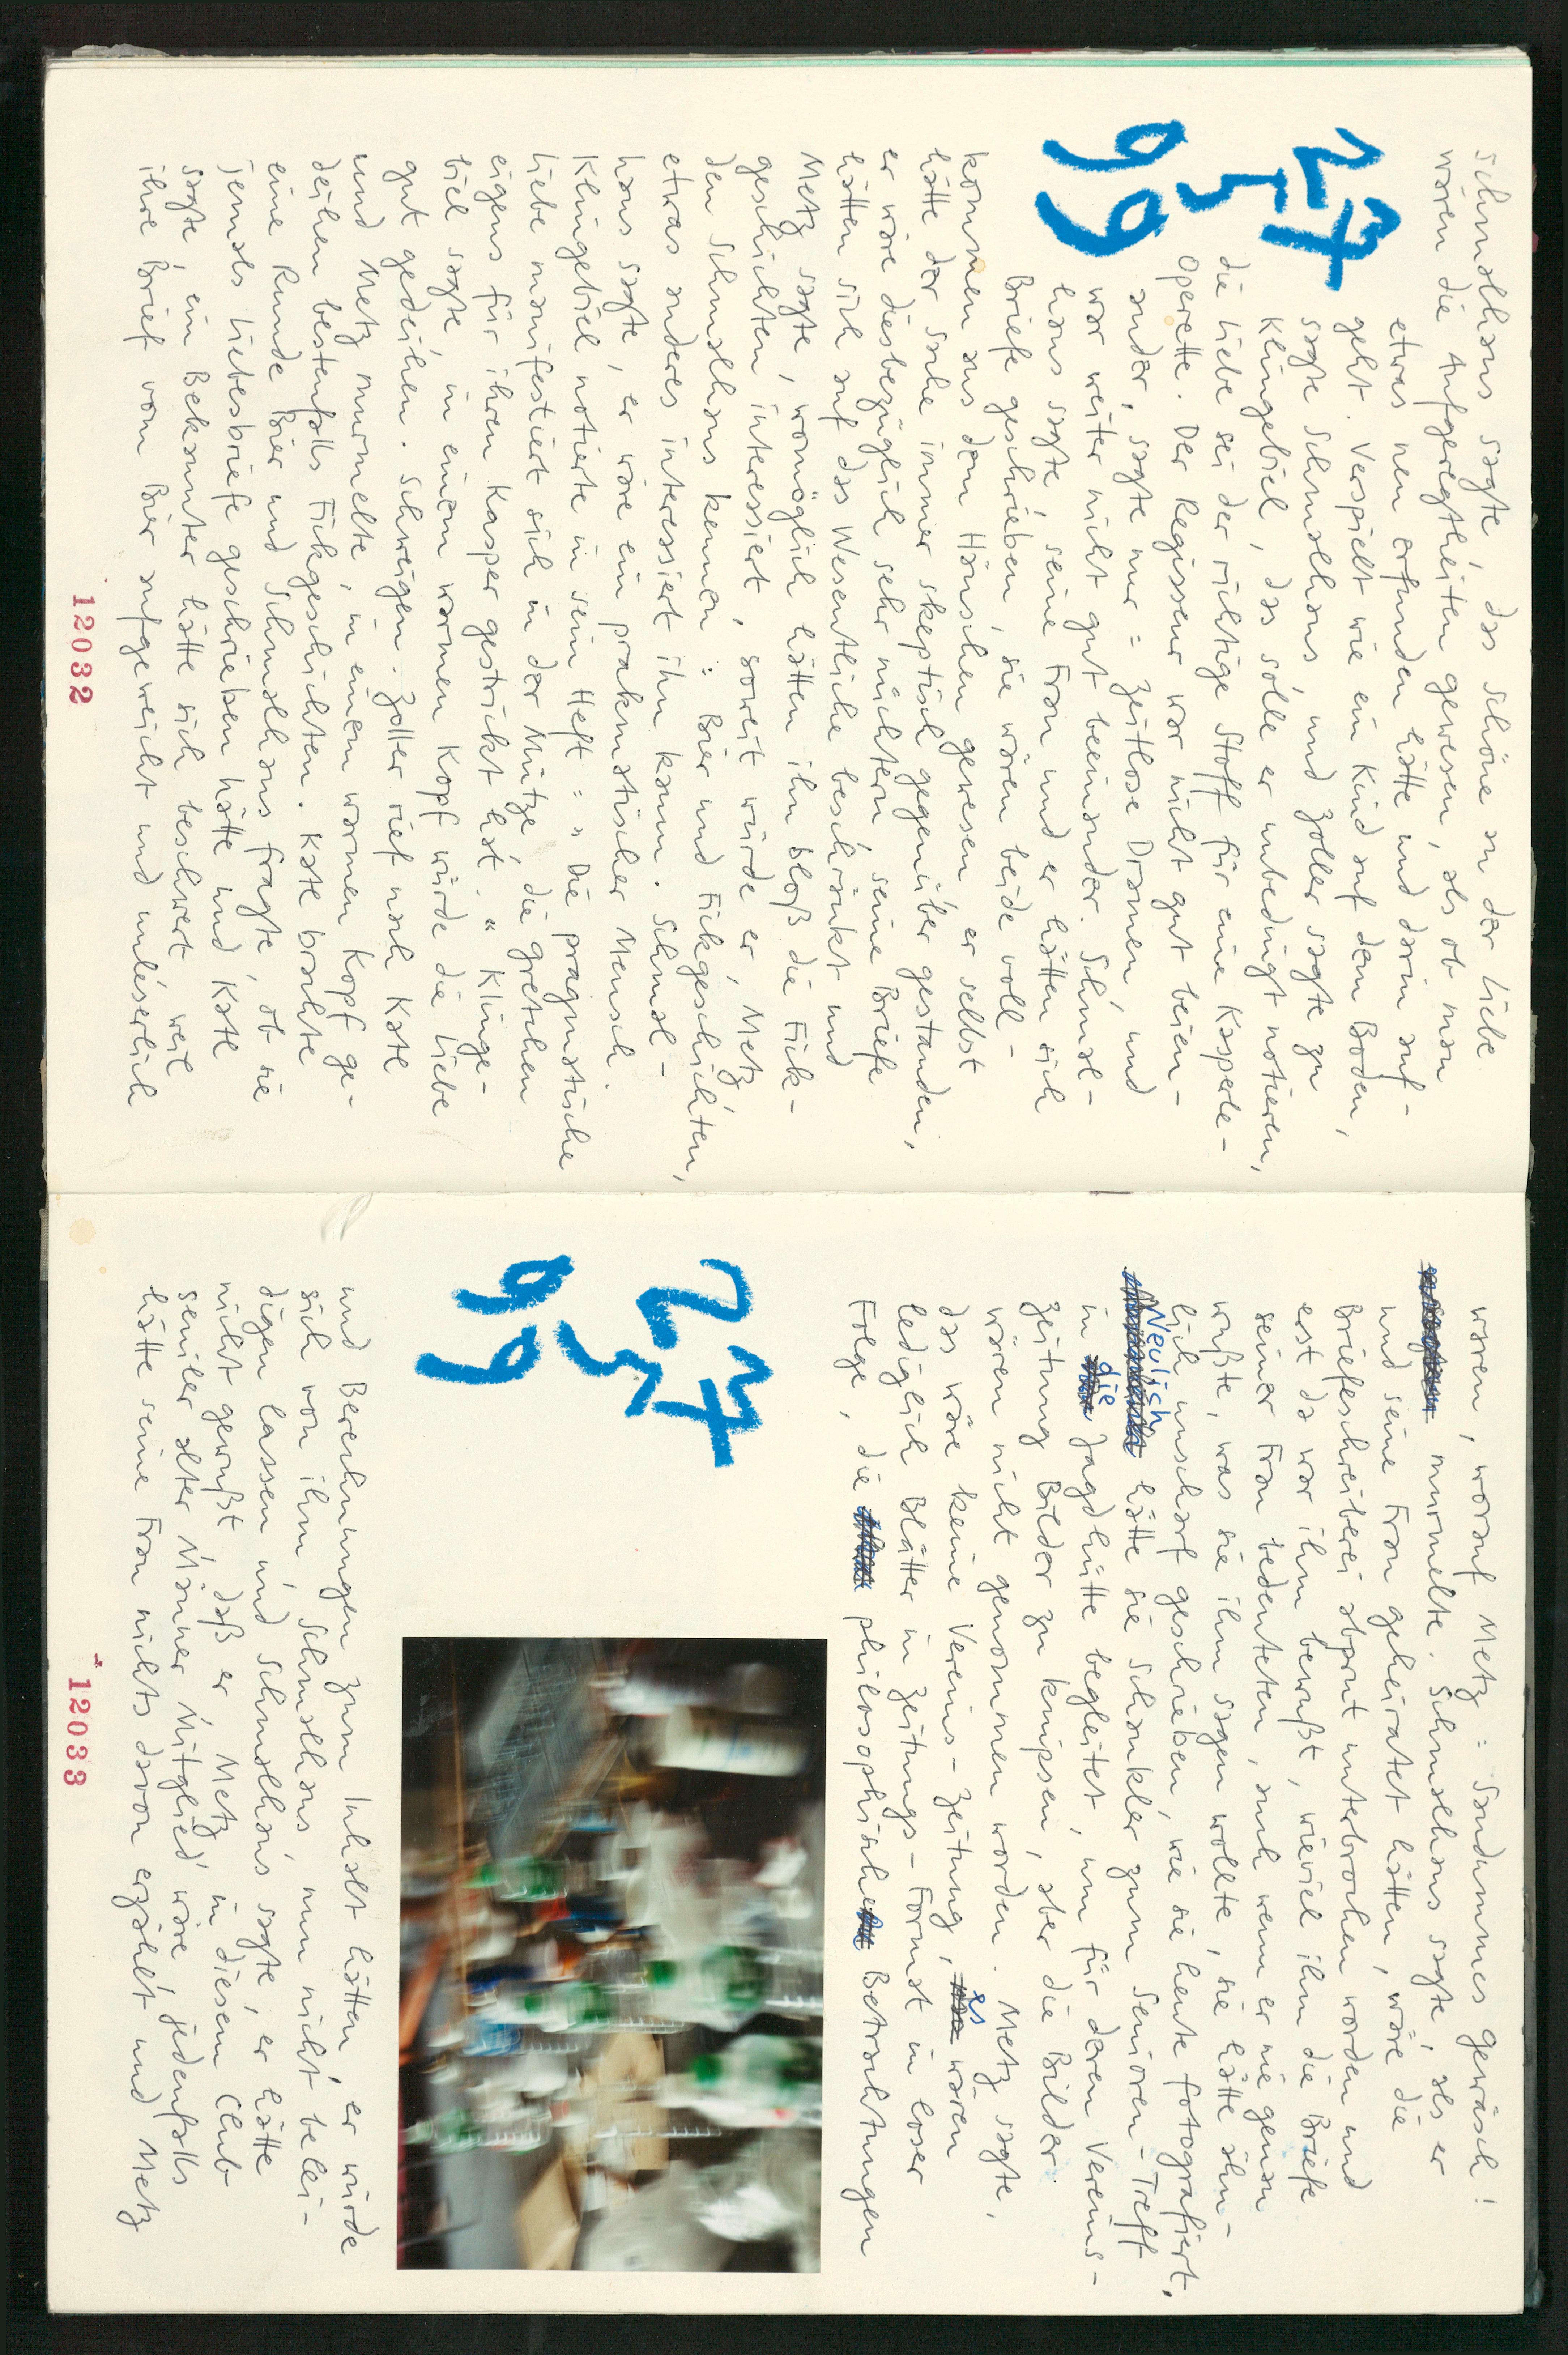 Schmalhans sagte, das Schöne an der Liebe
wären die Aufgeregtheiten gewesen, als ob man
etwas neu erfunden hätte und darin auf-
geht. Verspielt wie ein Kind auf dem Boden,
sagte Schmalhans, und Zoller sagte zu
Klingebiel, das solle er unbedingt notieren,
die Liebe sei der richtige Stoff für eine Kasperle-
Operette. Der Regisseur war nicht gut beiein-
ander, sagte nur: Zeitlose Dramen, und
war weiter nicht gut beeinander. Schmal-
hans sagte, seine Frau und er hätten sich
Briefe geschrieben, sie wären beide voll-
kommen aus dem Häuschen gewesen er selbst
hätte der Sache immer skeptisch gegenüber gestanden,
er wäre diesbezüglich sehr nüchtern, seine Briefe
hätten sich auf das Wesentliche beschränkt und
Metz sagte, womöglich hätten ihn bloß die Fick-
geschichten interessiert, soweit würde er, Metz
den Schmalhans kennen: Bier und Fickgeschichten,
etwas anderes interessiert ihn kaum. Schmal-
hans sagte, er wäre ein prakmatischer Mensch.
Klingebiel notierte in sein Heft: "Die pragmatische
Liebe manifestiert sich in der Mütze, die Gretchen
eigens für ihren Kasper gestrickt hat." Klinge-
biel sagte, in einem warmen Kopf würde die Liebe
gut gedeihen. Schweigen. Zoller rief nach Kate
und Metz murmelte, in einem warmen Kopf ge-
deihen bestenfalls Fickgeschichten. Kate brachte
eine Runde Bier und Schmalhans fragte, ob sie
jemals Liebesbriefe geschrieben hätte und Kate
sagte, ein Bekannter hätte sich beschwert weil
ihre Brief von Bier aufgeweicht und unleserlich
23
7
5
99
12032
waren, worauf Metz: Saudummes Gewäsch!
murmelte. Schmalhans sagte, als er
und seine Frau geheiratet hätten, wäre die
Briefeschreiberei abprut unterbrochen worden und
erst da war ihm bewußt, wieviel ihm die Briefe
seiner Frau bedeuteten, auch wenn er nie genau
wußte, was sie ihm sagen wollte, sie hätte ähn-
lich unscharf geschrieben, wie sie heute fotografiert.
Neulich hätte sie Schankler zum Senioren-Treff
in die Jagdhütte begleitet, um für deren Vereins-
zeitung Bilder zu knipsen, aber die Bilder
wären nicht genommen worden. Metz sagte,
das wäre keine Vereins-Zeitung, es wären
lediglich Blätter in Zeitungs-Format in loser
Folge, die philosophische Betrachtungen
23
7
5
99
und Berechnungen zum Inhalt hätten, er würde
sich von ihm, Schmalhans nun nicht belei-
digen lassen und Schmalhans sagte, er hätte
nicht gewußt, daß er, Metz in diesem Club
seniler alter Männer Mitglied wäre, jedenfalls
hätte seine Frau nichts davon erzählt und Metz
12033